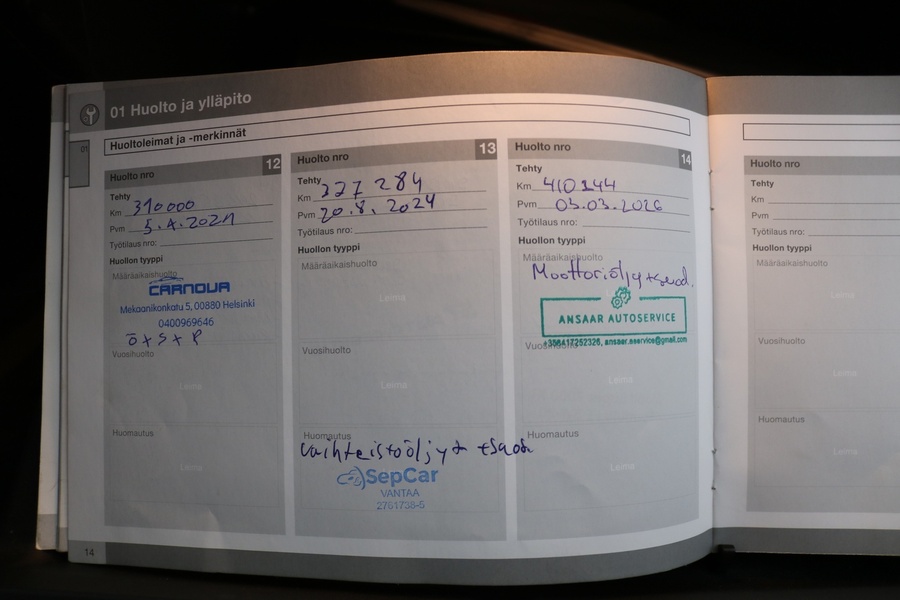 01 Huolto ja ylläpito
01
Huoltoleimat ja -merkinnät
Huolto nro 12
Tehty
Km 310000
Pvm 5.4.2021
Työtilaus nro:
Huollon tyyppi
Määräaikaishuolto
CARNOVA
Mekaanikonkatu 5, 00880 Helsinki
0400969646
Ö + S + P
Vuosihuolto
Leima
Huomautus
Leima
Huolto nro 13
Tehty
Km 327 284
Pvm 20.8.2024
Työtilaus nro:
Huollon tyyppi
Määräaikaishuolto
Leima
Vuosihuolto
Leima
Huomautus
Vaihteistoöljyt +suod.
SepCar
VANTAA
2761738-5
Huolto nro 14
Tehty
Km 410144
Pvm 03.03.2026
Työtilaus nro:
Huollon tyyppi
Määräaikaishuolto
Moottoriöljy +suod.
ANSAAR AUTOSERVICE
+358417252326, ansaar.aservice@gmail.com
Vuosihuolto
Leima
Huomautus
Leima
Huolto nro
Tehty
Km
Pvm
Työtilaus nro:
Huollon tyyppi
Määräaikaishuolto
Leima
Vuosihuolto
Leima
Huomautus
Leima
14